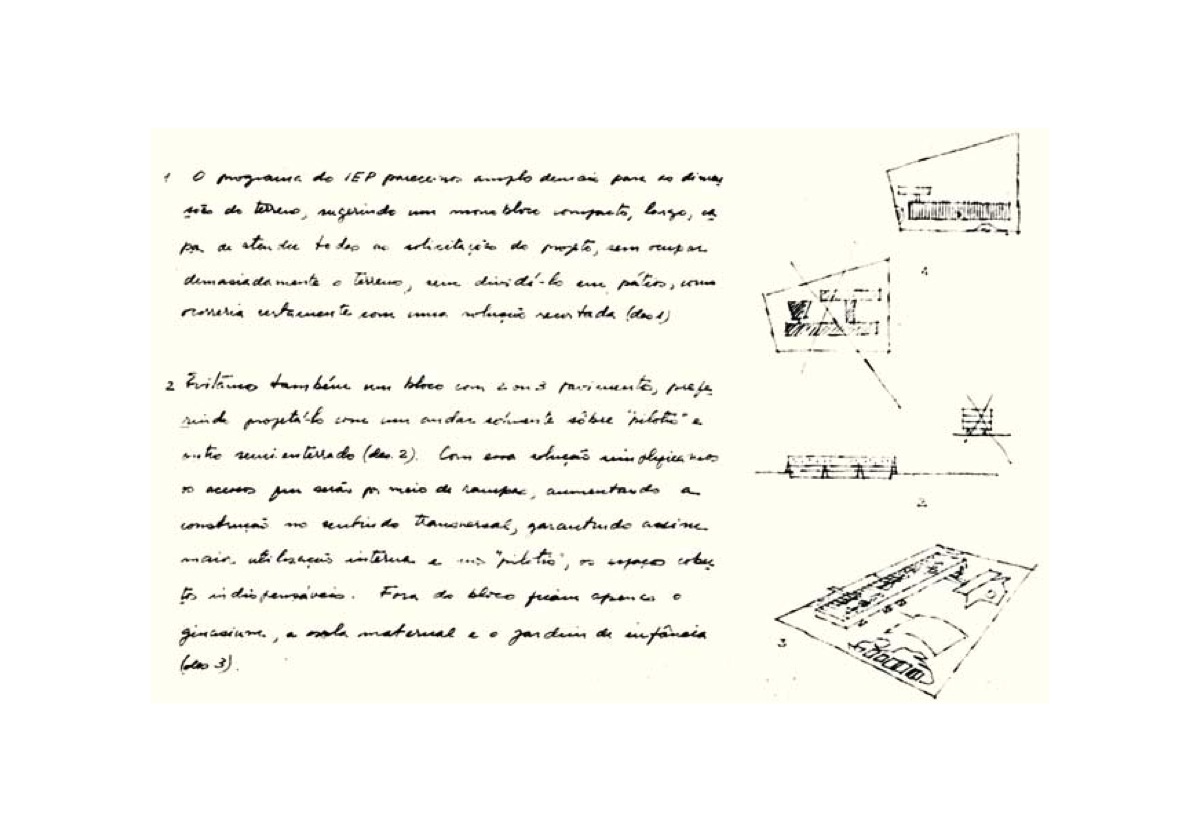 1 O programa do IEP pareceu-nos amplo demais para as dimen
sões do terreno, sugerindo um monobloco compacto, largo, ca
paz de atender todas as solicitações do projeto, sem ocupar
demasiadamente o terreno, sem dividí-lo em pátios, como
ocorreria certamente com uma solução recortada (des 1)
2 Evitâmos também um bloco com 2 ou 3 pavimentos, prefe
rindo projetá-lo com um andar sòmente sôbre "pilotis" e
outro semi enterrado (des. 2). Com essa solução simplificamos
os acessos que serão por meio de rampas, aumentando a
construção no sentido transversal, garantindo assim
maior utilização interna e nos "pilotis", os espaços cober
tos indispensáveis. Fora do bloco ficam apenas o
ginasium, a escola maternal e o jardim de infância
(des 3).
1
2
3